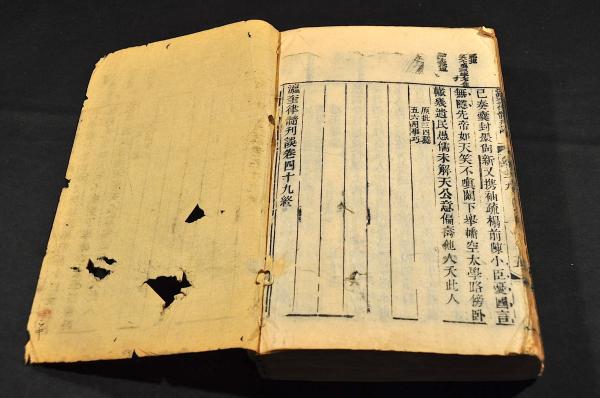 已奏囊封墨尚新又携袖疏榻前陳小臣憂國言
無隱先帝如天笑不嗔闕下舉幡空太學路傍卧
轍幾遺民愚儒未解天公意偏壽他人夭此人
原批三四
五六用事巧
瀛奎律髓刊誤卷四十九終